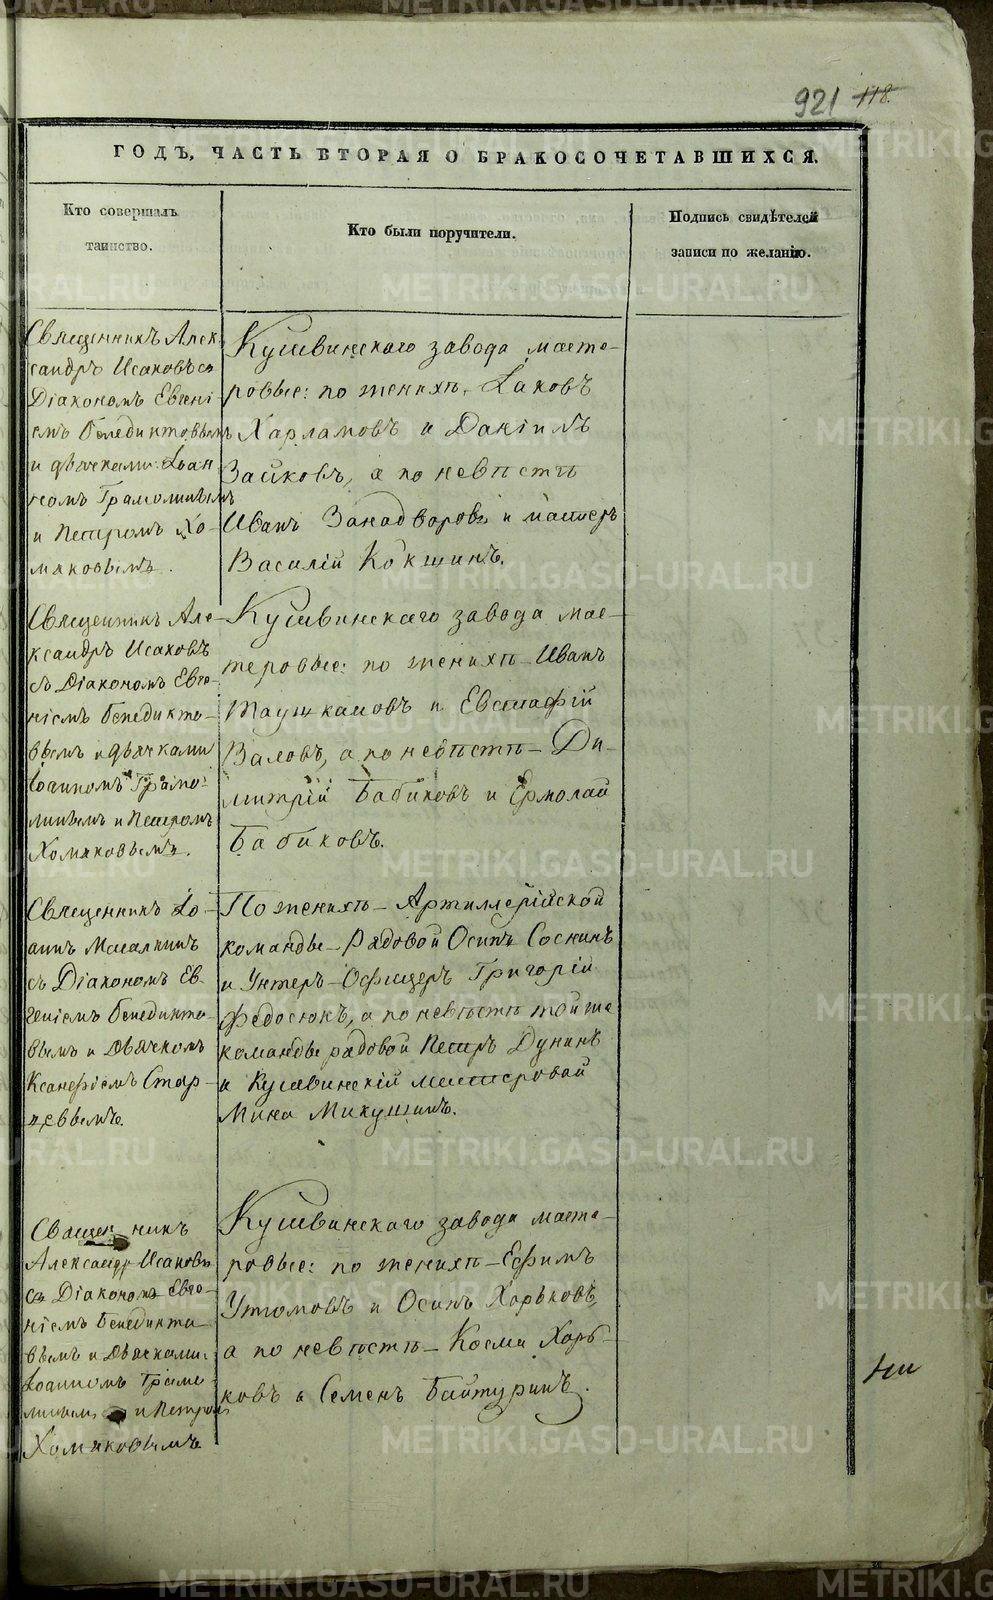 921 118.
ГОДЪ, ЧАСТЬ ВТОРАЯ О БРАКОСОЧЕТАВШИХСЯ.
Кто совершалъ
таинство.
Кто были поручители.
Подпись свидѣтелей
записи по желанію.
Священникъ Алек
сандръ Исаковъ съ
Діакономъ Евгені
емъ Бенедиктовымъ
и дьячками Іоан
номъ Грамолинымъ
и Петромъ Хо-
мяковымъ.
Кушвинскаго завода масте-
ровые: по женихѣ, Іаковъ
Харламовъ и Даніилъ
Зайковъ, а по невѣстѣ
Иванъ Занадворовъ и мастеръ
Василій Кокшинъ.
Священникъ Але-
ксандръ Исаковъ
съ Діакономъ Евге-
ніемъ Бенедикто-
вымъ и дьячками
Іоанномъ Грамо-
линымъ и Петромъ
Хомяковымъ.
Кушвинскаго завода мас-
теровые: по женихѣ - Иванъ
Таушкановъ и Евстафій
Валовъ, а по невѣстѣ - Ди-
митрій Бабиковъ и Ермолай
Бабиковъ.
Священникъ Іо-
аннъ
съ Діакономъ Ев-
геніемъ Бенедикто-
вымъ и Дьячкомъ
Ксанфіемъ Стар-
цевымъ.
По женихѣ - Артиллерійской
команды - Рядовой Осипъ Соснинъ
и Унтеръ-Офицеръ Григорій
Федосюкъ, а по невѣстѣ той же
команды рядовой Петръ Дунинъ
и Кушвинскій мастеровой
Мина Микушинъ.
Священникъ
Александръ Исаковъ
съ Діакономъ Евге-
ніемъ Бенедикто-
вымъ и Дьячками:
Іоанномъ Грамо-
линымъ и Петромъ
Хомяковымъ
Кушвинскаго завода масте-
ровые: по женихѣ - Ефимъ
Утемовъ и Осипъ Хорьковъ,
а по невѣстѣ - Косма Хорь-
ковъ и Семенъ Байтуринъ.
METRIKI.GASO-URAL.RU